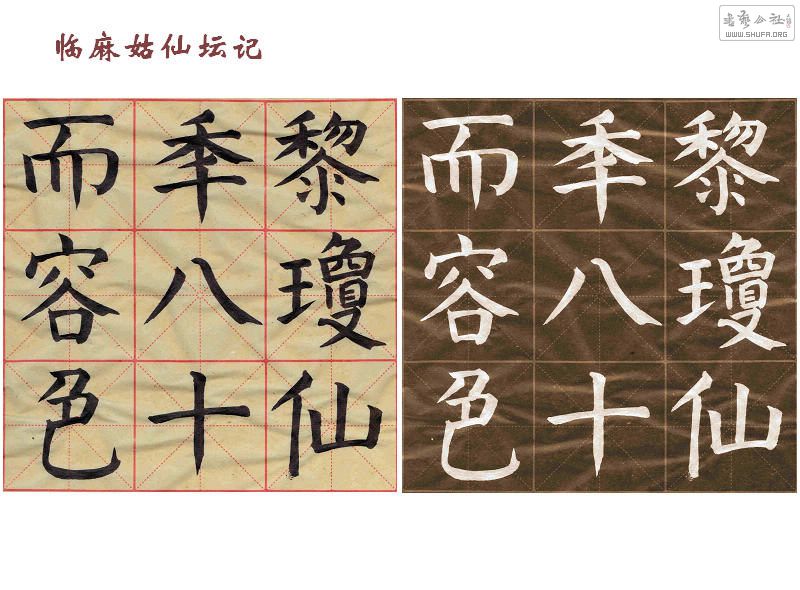 临麻姑仙坛记
書藝公社
WWW.SHUFA.ORG
黎瓊仙
秊八十
而容色
黎瓊仙
秊八十
而容色